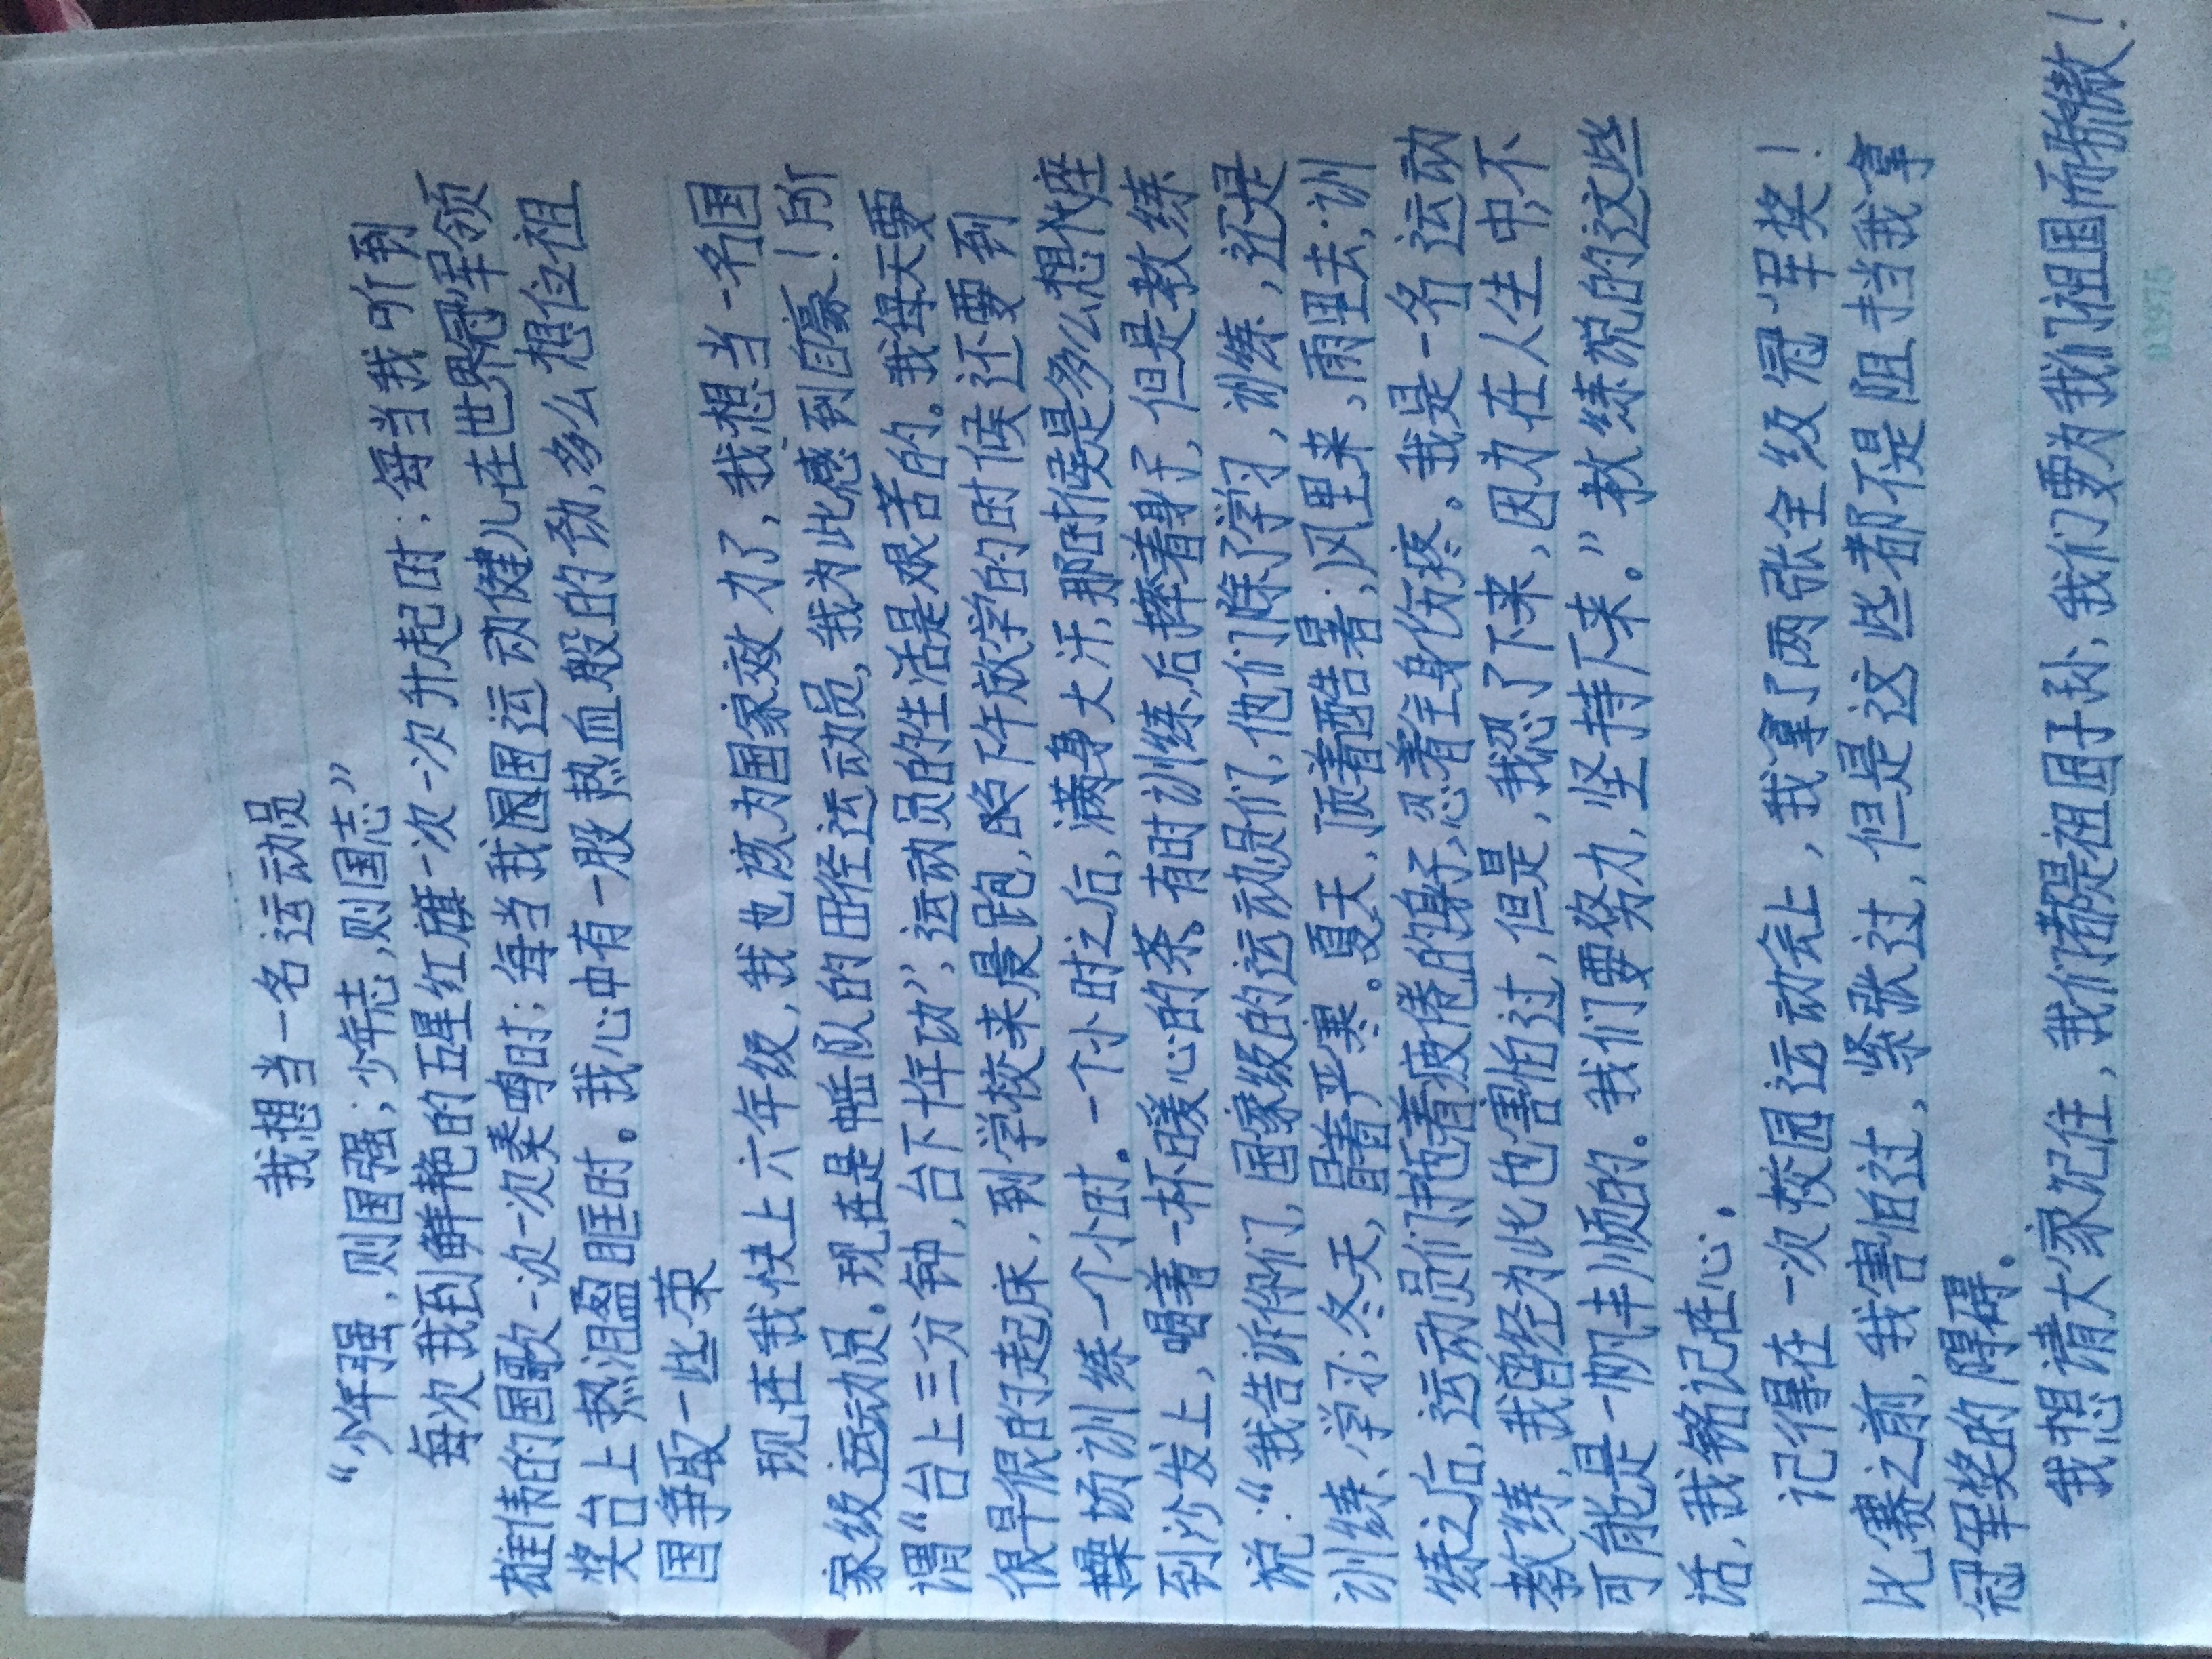 我想当一名运动员
“少年强，则国强；少年志，则国志”
每次我到鲜艳的五星红旗一次一次升起时；每当我听到
雄伟的国歌一次一次奏鸣时；每当我国运动健儿在世界冠军领
奖台上热泪盈眶时。我心中有一股热血般的劲，多么想位祖
国争取一些荣
现在我快上六年级，我也该为国家效力了，我想当一名国
家级运动员。现在是岳队的田径运动员，我为此感到自豪！所
谓“台上三分钟，台下十年功”，运动员的生活是艰苦的。我每天要
很早很的起床，到学校来晨跑，下午放学的时候还要到
操场训练一个小时。一个小时之后，满身大汗，那时候是多么想座
到沙发上，喝着一杯暖心的茶。有时训练后捧着身子，但是教练
说：“我告诉你们，国家级的运动员们，他们除了学习，训练，还是
训练、学习；冬天，冒着严寒。夏天，顶着酷暑；风里来，雨里去，训
练之后，运动员们拖着疲倦的身子，忍着主身伤疼。我是一名运动
教练，我曾经为此也害怕过，但是，我忍了下来，因为在人生中，不
可能是一帆丰顺的。我们要努力，坚持下来。”教练说的这些
话，我铭记在心。
记得在一次校园运动会上，我拿了两张全级冠军奖！
比赛之前，我害怕过，紧张过，但是这些都不是阻挡我拿
冠军奖的障碍。
我想请大家记住，我们都是祖国子孙，我们要为我们祖国而骄傲！
03975